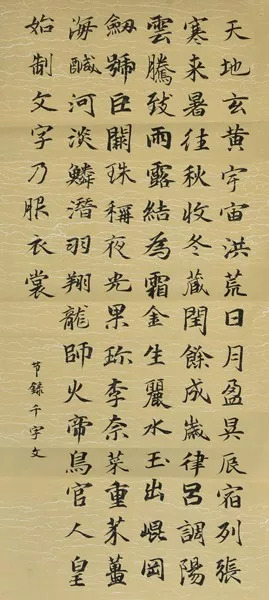 天地玄黄宇宙洪荒日月盈昃辰宿列張
寒来暑往秋收冬藏閏餘成歲律呂調陽
雲騰致雨露結為霜金生麗水玉出崐岡
劒號巨闕珠稱夜光果珎李奈菜重芥薑
海鹹河淡鱗潛羽翔龍師火帝鳥官人皇
始制文字乃服衣裳
节錄千字文